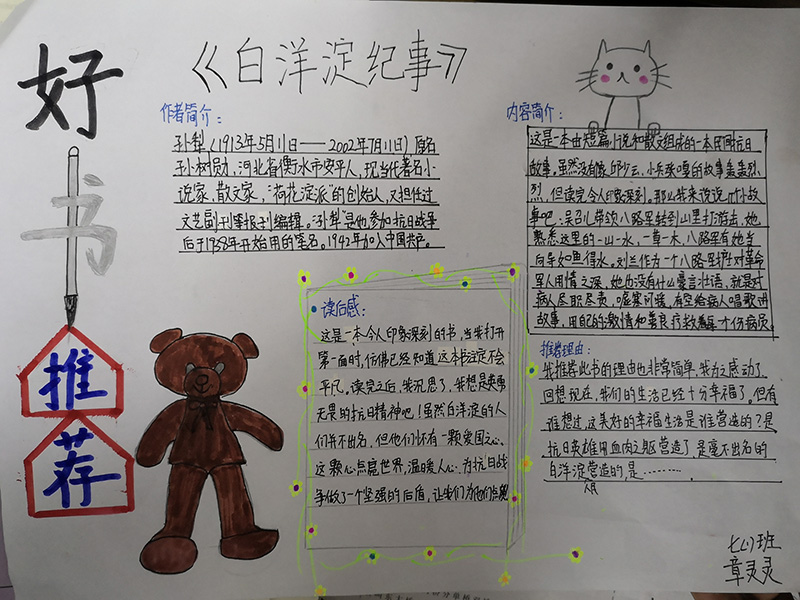 好书推荐
《白洋淀纪事》
作者简介：
孙犁（1913年5月11日——2002年7月11日）原名
孙树勋，河北省衡水市安平人，现当代著名小
说家、散文家，“荷花淀派”的创始人，又担任过
文艺副刊等报刊编辑。“孙犁”是他参加抗日战争
后于1938年开始用的笔名。1942年加入中国共产。
内容简介：
这是一本由短篇小说和散文组成的一本民间抗日
故事。虽然没有像邱少云、小兵张嘎的故事轰轰烈
烈，但读完令人印象深刻。那么我来说说几个小故
事吧：吴召儿带领八路军转到山里打游击，她
熟悉这里的一山一水，一草一木，八路军有她当
向导如鱼得水。刘兰作为一个八路军护士对革命
军人用情之深，她也没有什么豪言壮语，就是对
病人尽职尽责，嘘寒问暖，有空给病人唱歌讲
故事，用自己的激情和善良疗救着每一个伤病员。
读后感：
这是一本令人印象深刻的书，当我打开
第一面时，仿佛已经知道这本书注定不会
平凡。读完之后，我沉思了，我想是英勇
无畏的抗日精神吧！虽然白洋淀的人
们并不出名，但他们怀有一颗爱国之心、
这颗心点亮世界，温暖人心。为抗日战
争做了一个坚强的后盾，让我们为他们点
推荐理由：
我推荐此书的理由也非常简单，我为之感动了。
回想现在，我们的生活已经十分幸福了。但有
谁想过，这美好的幸福生活是谁营造的？是
抗日英雄用血肉之躯营造了，是毫不出名的
白洋淀人民营造的，是………
七(1)班
章灵灵